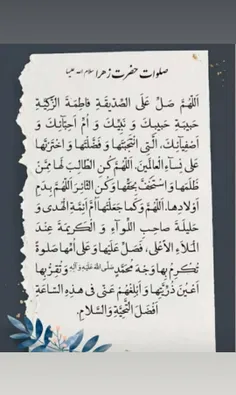 صلوات حضرت زهرا سلام الله علیها
اَللّٰهُمَّ صَلِّ عَلَی الصِّدّیقَةِ فاطِمَةَ الزَّکِیَّةِ
حَبیبَةِ حَبیبِکَ وَ نَبِیِّکَ وَ اُمِّ اَحِبّآئِکَ وَ
اَصْفِیآئِکَ، اَلَّتِی انْتَجَبْتَها وَ فَضَّلْتَها وَ اخْتَرْتَها
عَلی نِسآءِ الْعالَمینَ، اَللّٰهُمَّ کُنِ الطّالِبَ لَها مِمَّنْ
ظَلَمَها وَ اسْتَخَفَّ بِحَقِّها وَ کُنِ الثّائِرَ اَللّٰهُمَّ بِدَمِ
اَوْلادِها، اَللّٰهُمَّ وَ کَما جَعَلْتَها اُمَّ اَئِمَّةِ الْهُدی وَ
حَلیلَةَ صاحِبِ اللِّوآءِ وَ الْکَریمَةَ عِنْدَ
الْمَلَاءِ الْاَعْلی، فَصَلِّ عَلَیْها وَ عَلی اُمِّها صَلوةً
تُکْرِمُ بِها وَجْهَ مُحَمَّدٍ صَلَّی اللهُ عَلَیْهِ وَ آلِهِ وَ تُقِرُّ بِها
اَعْیُنَ ذُرِّیَّتِها وَ اَبْلِغْهُمْ عَنّی فی هذِهِ السّاعَةِ
اَفْضَلَ التَّحِیَّةِ وَ السَّلامِ.